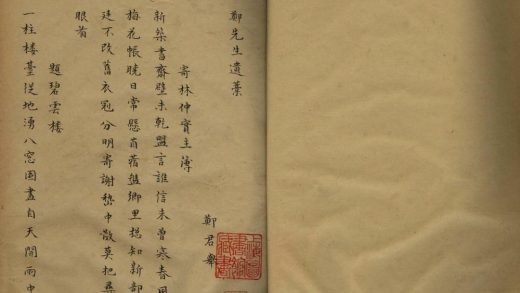 鄭先生遺藁
鄭君舉
寄林仲實主簿
新築書齋壁未乾盟言誰信未曾寒春
梅花帳曉日常懸苜蓿盤鄉里揔知新部
廷不改舊衣冠分明寄謝嵇中散莫把尋
眼看
題碧雲樓
一柱樓臺從地湧八窓圖畫自天開雨中